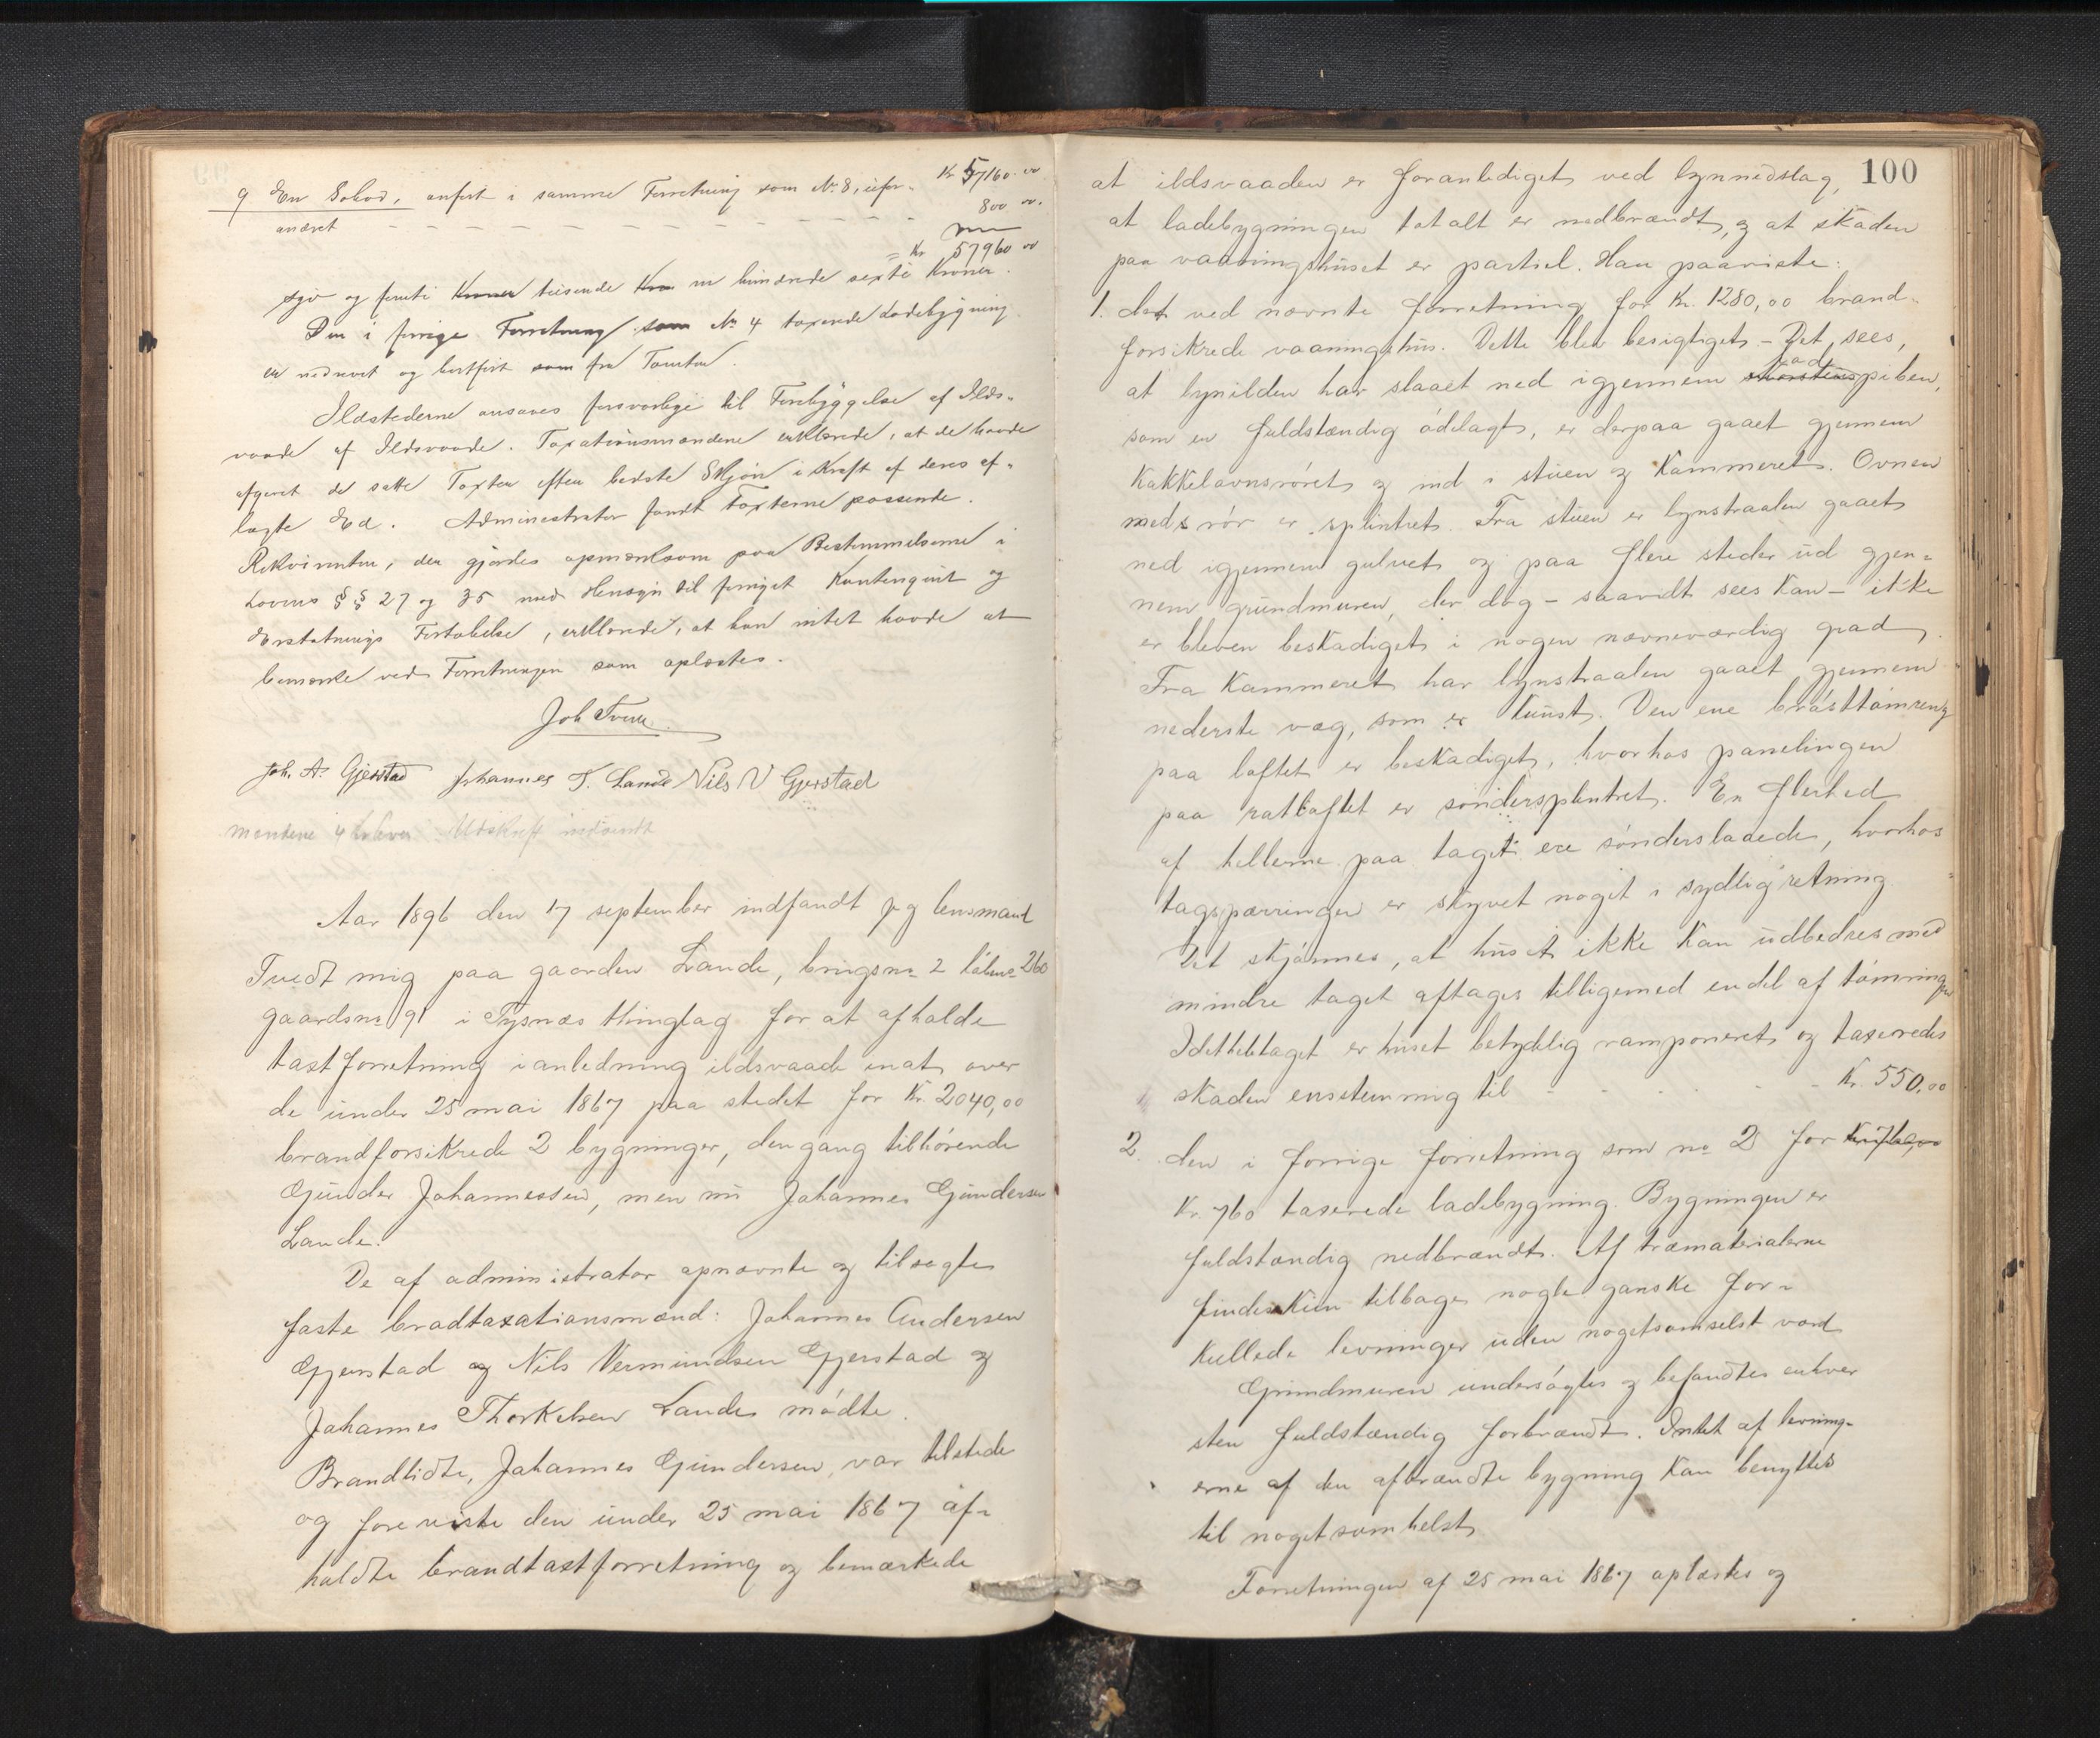 Kr 57160.00
9 En Sobod, anført i samme Forretning som No 8, ufor-
andret - - - - - - - - - 800 00.
= Kr 57960 00
syv og femti Kroner tusende Kro ni hundrede sexti Kroner.
Den i forrige Forretning som No 4 taxerede Ladebygning
er nedrevet og bortført som fra Tomten.
Ildstederne ansaaes forsvarlige til Forebyggelse af Ilds-
vaade af Ildsvaade. Taxationsmændene erklærede, at de havde
afgivet de satte Taxter efter bedste Skjøn i Kraft af deres af-
lagte Ed. Administrator fandt Taxterne passende.
Rekvirenten, der gjordes opmærksom paa Bestemmelserne i
Lovens §§ 27 og 35 med Hensyn til forøget Kontingent og
Erstatnings Fortabelse, erklærede, at han intet havde at
bemærke ved Forretningen som oplæstes.
Joh Tveit
Joh. A. Gjerstad Johannes T. Lande Nils V Gjerstad
mændene 4 Udskrift indsendt
Aar 1896 den 17 september indfandt jeg lensmand
Tvedt mig paa gaarden Lande, brugsno 2 løbeno 260
gaardsno 91 i Tysnæs thinglag for at afholde
taxtforretning i anledning ildsvaade inat over
de under 25 mai 1867 paa stedet for Kr. 2040,00
brandforsikrede 2 bygninger, dengang tilhørende
Gunder Johannessen, men nu Johannes Gundersen
Lande.
De af administrator opnævnte og tilsagte
faste bradtaxationsmænd: Johannes Andersen
Gjerstad og Nils Vermundsen Gjerstad og
Johannes Thorkelsen Lande mødte.
Brandlidte, Johannes Gundersen, var tilstede
og foreviste den under 25 mai 1867 af-
holdte brandtaxtforretning og bemærkede
100
at ildsvaaden er foranlediget ved lynnedslag,
at ladebygningen totalt er nedbrændt, og at skaden
paa vaaningshuset er partiel. Han paaviste:
1. det ved nævnte forretning for Kr. 1280,00 brand-
forsikrede vaaningshus. Dette blev besigtiget - Det sees,
at lynilden har slaaet ned igjennem skorstenspiben,
som er fuldstændig ødelagt, er derpaa gaaet gjennem
Kakkelovnsrøret og ind i stuen og Kammeret. Ovnen
med rør er splintret. Fra stuen er lynstraalen gaaet
ned igjennem gulvet og paa flere steder ud gjen-
nem grundmuren, der dog - saavidt sees kan - ikke
er bleven beskadiget i nogen nævneværdig grad.
Fra Kammeret har lynstraalen gaaet gjennem
nederste væg, som er knust. Den ene brøsttømring
paa loftet er beskadiget, hvorhos panelingen
paa ratloftet er søndersplintret. En flerhed
af hellerne paa taget ere sønderslaaede, hvorhos
tagsparringen er skyvet noget i sydlig retning.
Det skjønnes, at huset ikke kan udbedres med
mindre taget aftages tilligemed endel af tømringen
Idethele taget er huset betydelig ramponeret og taxeredes
skaden enstemmig til - - - - - Kr. 550,00
2. den i forrige forretning som no 2 for
Kr. 760 taxerede ladebygning. Bygningen er
fuldstændig nedbrændt. Af træmaterialerne
findes kun tilbage nogle ganske for-
kullede levninger uden nogetsomhelst værd
Grundmuren undersøgtes og befandtes enhver
sten fuldstændig forbrændt. Intet af levning-
erne af den afbrændte bygning kan benyttes
til nogetsomhelst
Forretningen af 25 mai 1867 oplæstes og